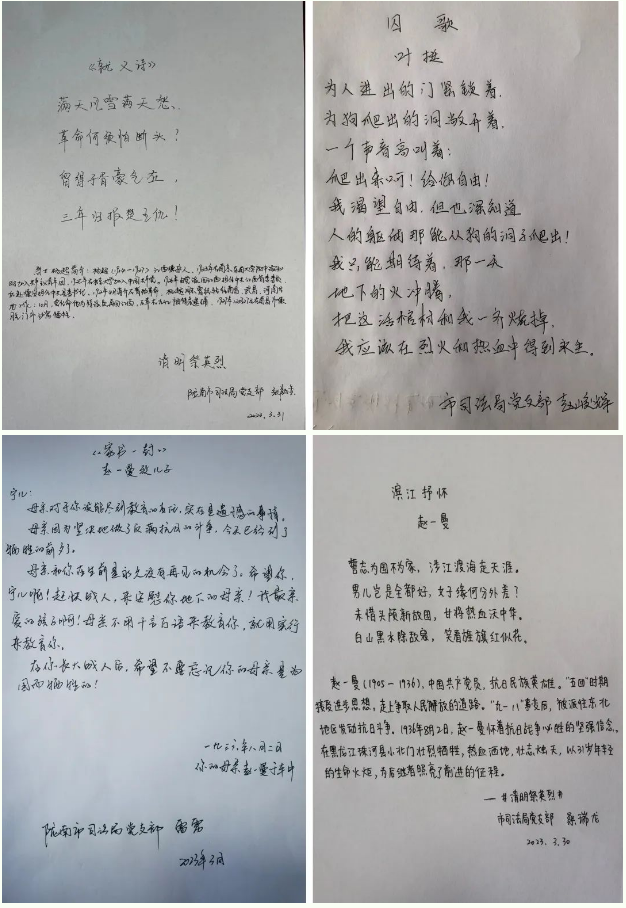 《就义诗》
满天风雪满天愁，
革命何须怕断头？
曾想子胥豪气在，
三年归报楚王仇！
清明祭英烈
陇南市司法局党支部
2023.3.31
囚 歌
叶挺
为人进出的门紧锁着，
为狗爬出的洞敞开着，
一个声音高叫着：
爬出来呵！给你自由！
我渴望自由，但也深知道
人的躯体那能从狗的洞子爬出！
我只能期待着，那一天
地下的火冲腾，
把这活棺材和我一齐烧掉，
我应该在烈火和热血中得到永生。
市司法局党支部
《家书一封》
赵一曼致儿子
宁儿：
母亲对于你没能尽到教育的责任，实在是遗憾的事情。
母亲因为坚决地做了反满抗日的斗争，今天已经到了
牺牲的前夕了。
母亲和你在生前是永久没有再见的机会了。希望你，
宁儿啊！赶快成人，来安慰你地下的母亲！我最亲
爱的孩子啊！母亲不用千言万语来教育你，就用实行
来教育你。
在你长大成人后，希望不要忘记你的母亲是为
国而牺牲的！
一九三六年八月二日
你的母亲赵一曼于车中
陇南市司法局党支部
2023年3月
滨江抒怀
赵一曼
誓志为国不为家，涉江渡海走天涯。
男儿岂是全都好，女子缘何分外差？
未惜头颅新故国，甘将热血沃中华。
白山黑水除敌寇，笑看旌旗红似花。
赵一曼（1905-1936），中国共产党员，抗日民族英雄。“五四”时期
接受进步思想，走上争取人民解放的道路。“九一八”事变后，被派往东北
地区发动抗日斗争。1936年8月2日，赵一曼怀着抗日战争必胜的坚强信念，
在黑龙江珠河县小北门壮烈牺牲，热血洒地，壮志烛天，以31岁年轻
的生命火炬，为后继者照亮了前进的征程。
—#清明祭英烈#
市司法局党支部 瑞龙
2023.3.30